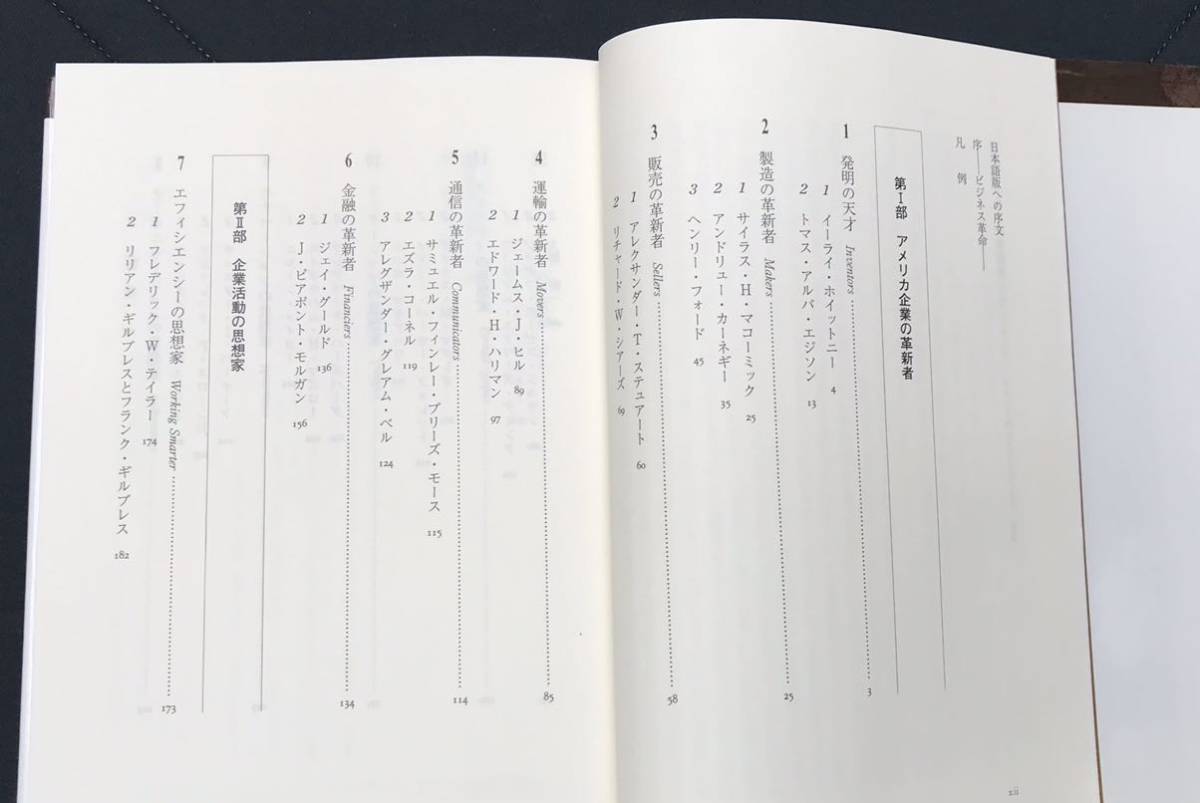 日本語版への序文
序——ビジネス革命——
凡 例
第Ⅰ部 アメリカ企業の革新者
1 発明の天才 Inventors 3
1 イーライ・ホイットニー 4
2 トマス・アルバ・エジソン 13
2 製造の革新者 Makers 25
1 サイラス・H・マコーミック 25
2 アンドリュー・カーネギー 35
3 ヘンリー・フォード 45
3 販売の革新者 Sellers 58
1 アレクサンダー・T・ステュアート 60
2 リチャード・W・シアーズ 69
xii
4 運輸の革新者 Movers 85
1 ジェームス・J・ヒル 89
2 エドワード・H・ハリマン 97
5 通信の革新者 Communicators 114
1 サミュエル・フィンレー・ブリーズ・モース 115
2 エズラ・コーネル 119
3 アレグザンダー・グレアム・ベル 124
6 金融の革新者 Financiers 134
1 ジェイ・グールド 136
2 J・ピアポント・モルガン 156
第Ⅱ部 企業活動の思想家
7 エフィシエンシーの思想家 Working Smarter 173
1 フレデリック・W・テイラー 174
2 リリアン・ギルブレスとフランク・ギルブレス 182